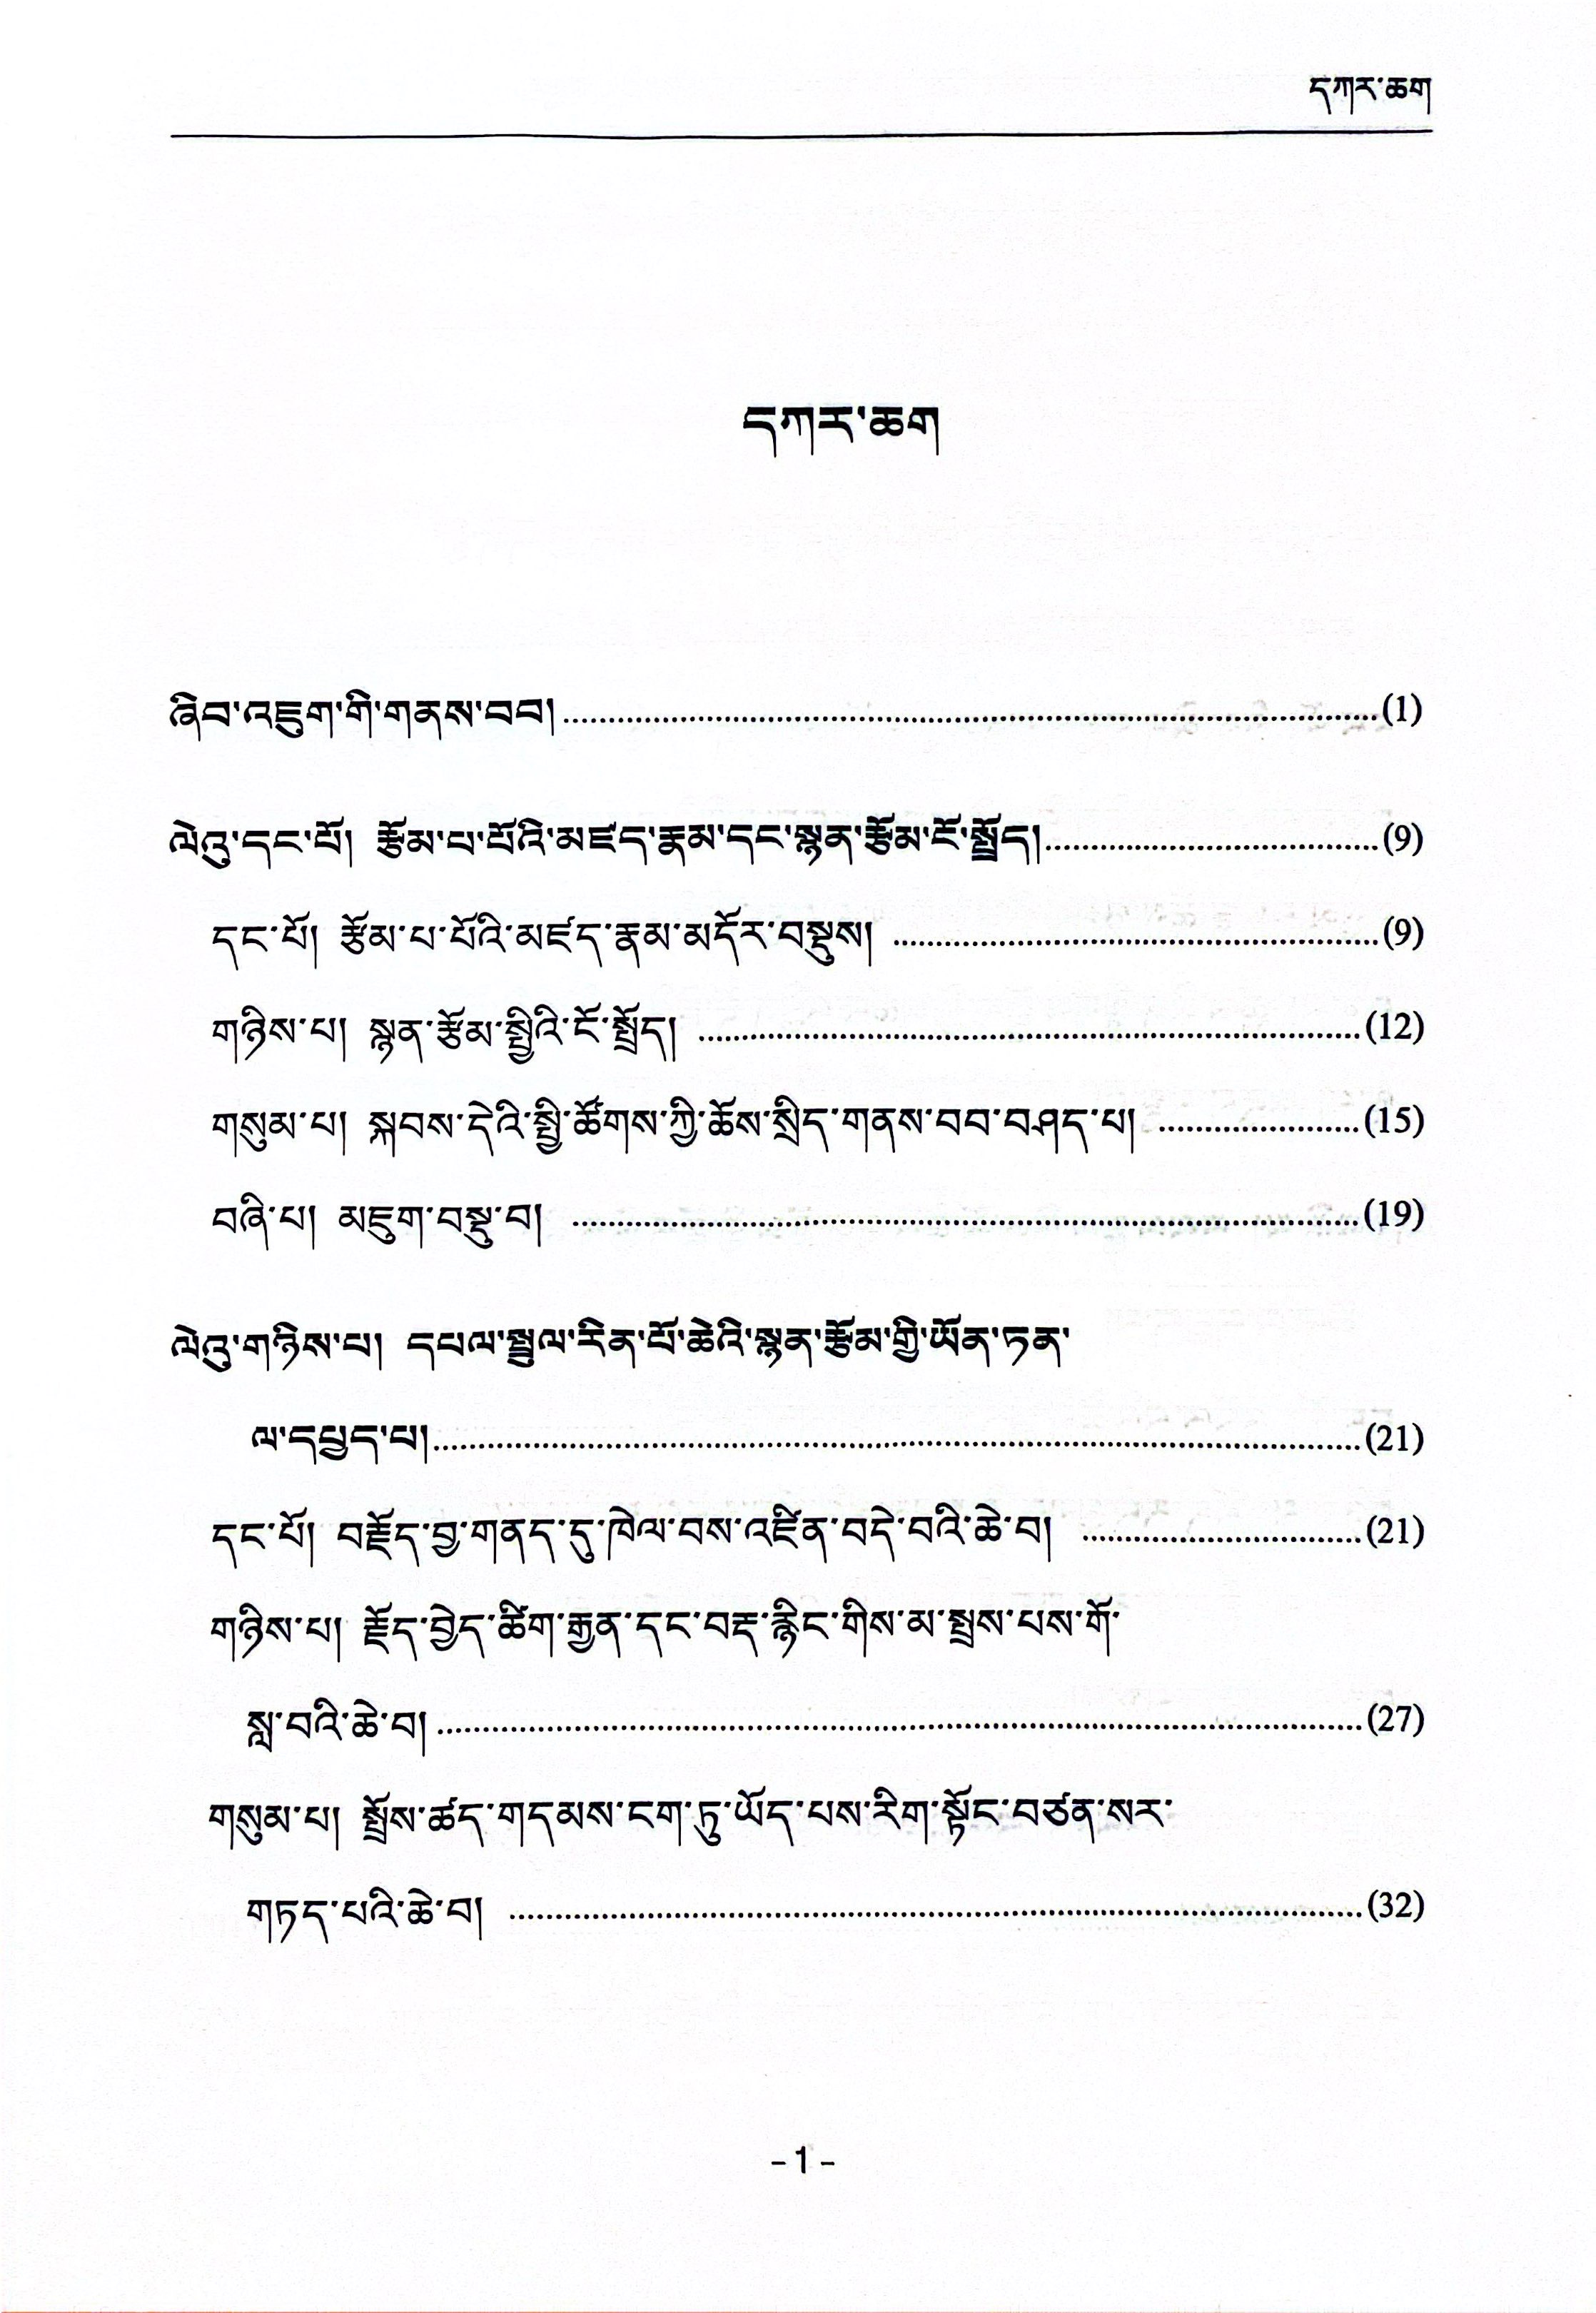 དཀར་ཆག
དཀར་ཆག
ཞིབ་འཇུག་གི་གནས་བབ།........................(1)
ལེའུ་དང་པོ། རྩོམ་པ་པོའི་མཛད་རྣམ་དང་སྙན་རྩོམ་ངོ་སྤྲོད།........................(9)
དང་པོ། རྩོམ་པ་པོའི་མཛད་རྣམ་མདོར་བསྡུས། ........................(9)
གཉིས་པ། སྙན་རྩོམ་སྤྱིའི་ངོ་སྤྲོད། ........................(12)
གསུམ་པ། སྐབས་དེའི་སྤྱི་ཚོགས་ཀྱི་ཆོས་སྲིད་གནས་བབ་བཤད་པ། ........................(15)
བཞི་པ། མཇུག་བསྡུ་བ། ........................(19)
ལེའུ་གཉིས་པ། དཔལ་སྤྲུལ་རིན་པོ་ཆེའི་སྙན་རྩོམ་གྱི་ཡོན་ཏན་
ལ་དཔྱད་པ།........................(21)
དང་པོ། བརྗོད་བྱ་གནད་དུ་ཁེལ་བས་འཛིན་བདེ་བའི་ཆེ་བ། ........................(21)
གཉིས་པ། རྗོད་བྱེད་ཚིག་རྒྱན་དང་བརྡ་རྙིང་གིས་མ་སྤྲས་པས་གོ་
སླ་བའི་ཆེ་བ།........................(27)
གསུམ་པ། སྤྲོས་ཚད་གདམས་ངག་ཏུ་ཡོད་པས་རིག་སྟོང་བཙན་སར་
གཏད་པའི་ཆེ་བ། ........................(32)
- 1 -